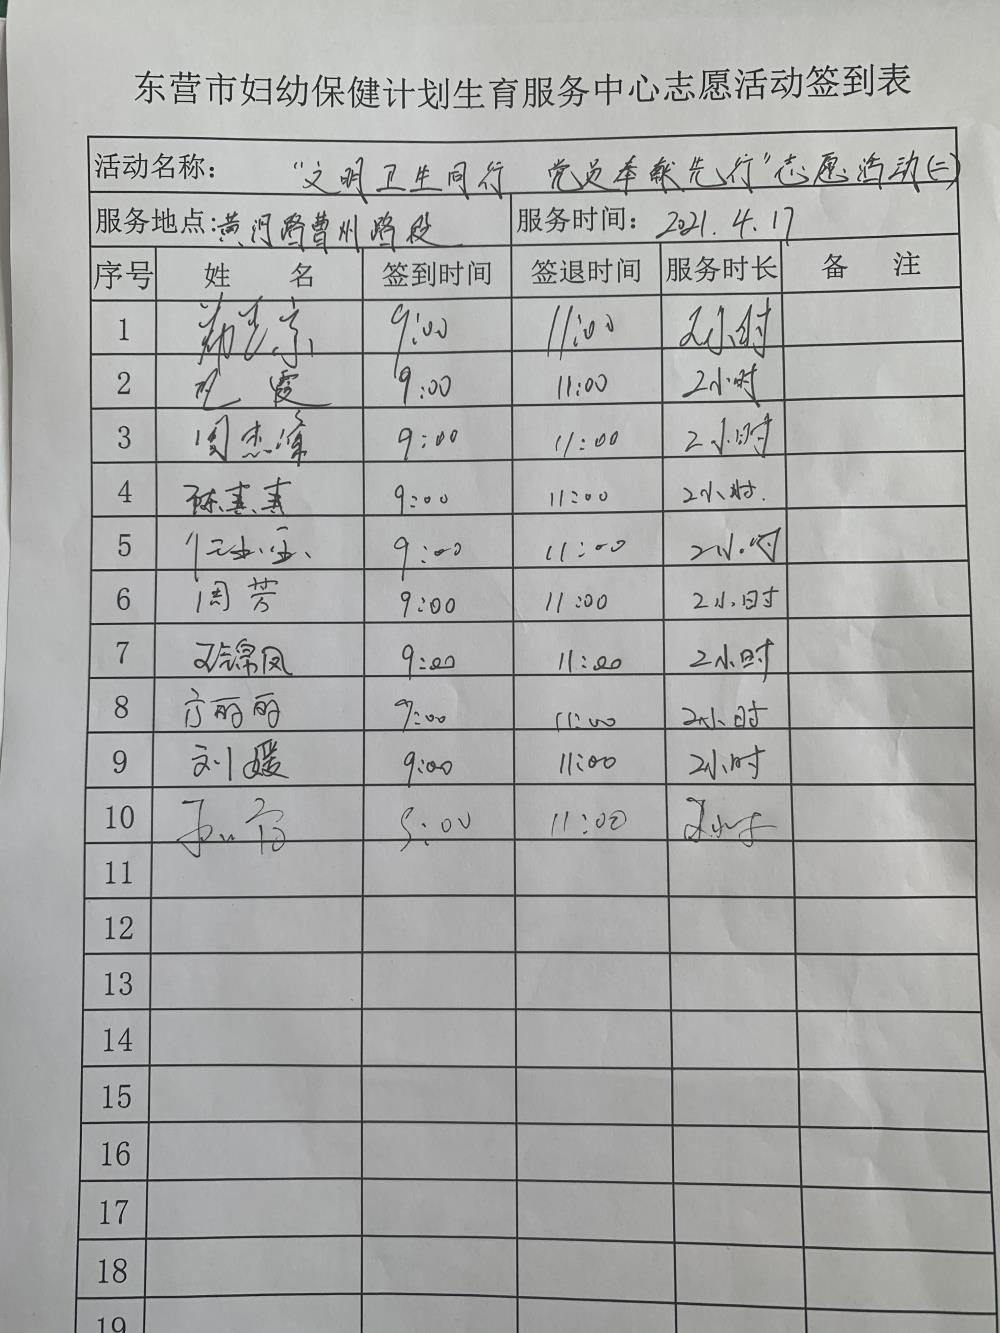 东营市妇幼保健计划生育服务中心志愿活动签到表
活动名称： “文明卫生同行 党员奉献先行”志愿活动(二)
服务地点:黄河路曹州路段 服务时间：2021.4.17
序号 姓 名 签到时间 签退时间 服务时长 备 注
1 9:00 11:00 2小时
2 霞 9:00 11:00 2小时
3 周杰 9:00 11:00 2小时
4 9:00 11:00 2小时.
5 9:00 11:00 2小时
6 周芳 9:00 11:00 2小时
7 锦凤 9:00 11:00 2小时
8 丽丽 9:00 11:00 2小时
9 刘媛 9:00 11:00 2小时
10 9:00 11:00 2小时
11
12
13
14
15
16
17
18
19